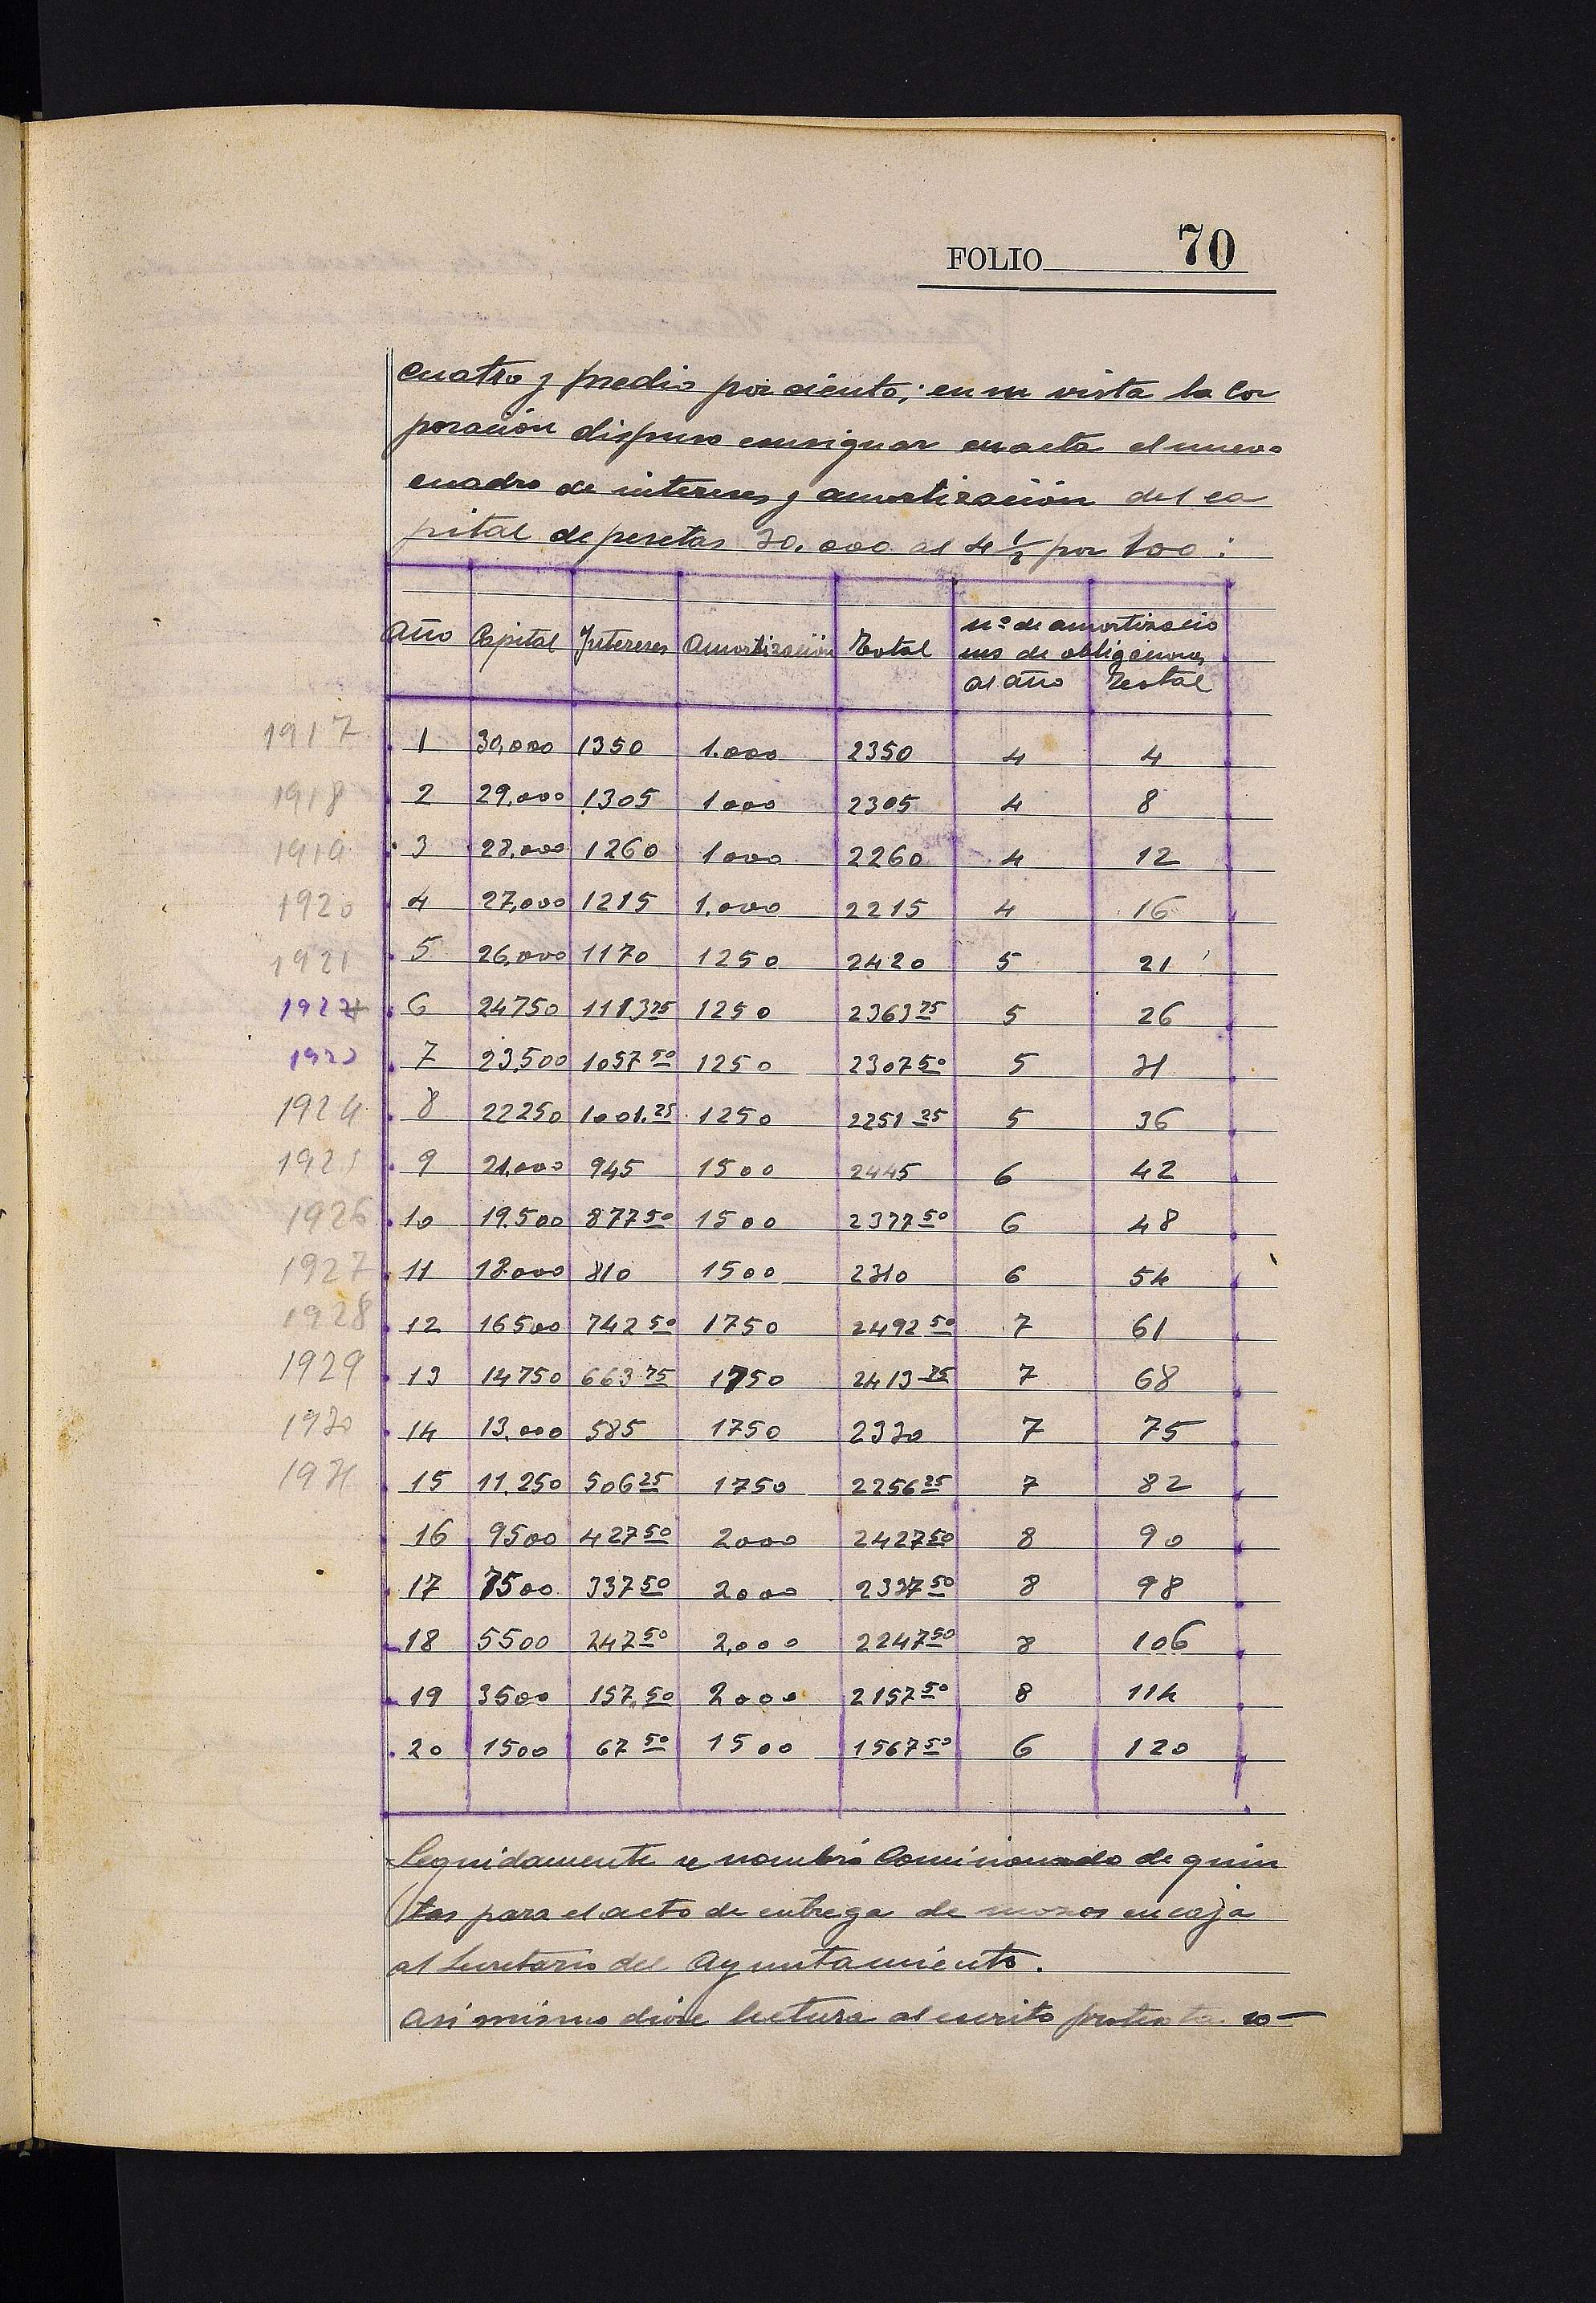 FOLIO 70
cuatro y medio por ciento; en su vista la Cor
poración dispuso consignar en acta el nuevo
cuadro de intereses y amortización del ca
pital de pesetas 30.000 al 4 1/2 por 100:
Año Capital Intereses Amortización Total nº de amortizacio
nes de obligaciones
al año Total
1917 1 30,000 1350 1.000 2350 4 4
1918 2 29.000 1305 1000 2305 4 8
1919 3 28,000 1260 1000 2260 4 12
1920 4 27,000 1215 1.000 2215 4 16
1921 5 26,000 1170 1250 2420 5 21
1922 6 24750 1113 75 1250 2363 75 5 26
1923 7 23,500 1057 50 1250 2307 50 5 31
1924 8 22250 1001.25 1250 2251 25 5 36
1925 9 21,000 945 1500 2445 6 42
1926 10 19.500 877 50 1500 2377 50 6 48
1927 11 18.000 810 1500 2310 6 54
1928 12 16500 742 50 1750 2492 50 7 61
1929 13 14750 663 75 1750 2413 75 7 68
1930 14 13,000 585 1750 2330 7 75
1931 15 11.250 506 25 1750 2256 25 7 82
16 9500 427 50 2000 2427 50 8 90
17 7500 337 50 2000 2337 50 8 98
18 5500 247 50 2,000 2247 50 8 106
19 3500 157,50 2000 2157 50 8 114
20 1500 67 50 1500 1567 50 6 120
Seguidamente se nombró Comisionado de quin
tas para el acto de entrega de mozos en caja
al Secretario del Ayuntamiento.
Asi mismo diose lectura al escrito protesta so-